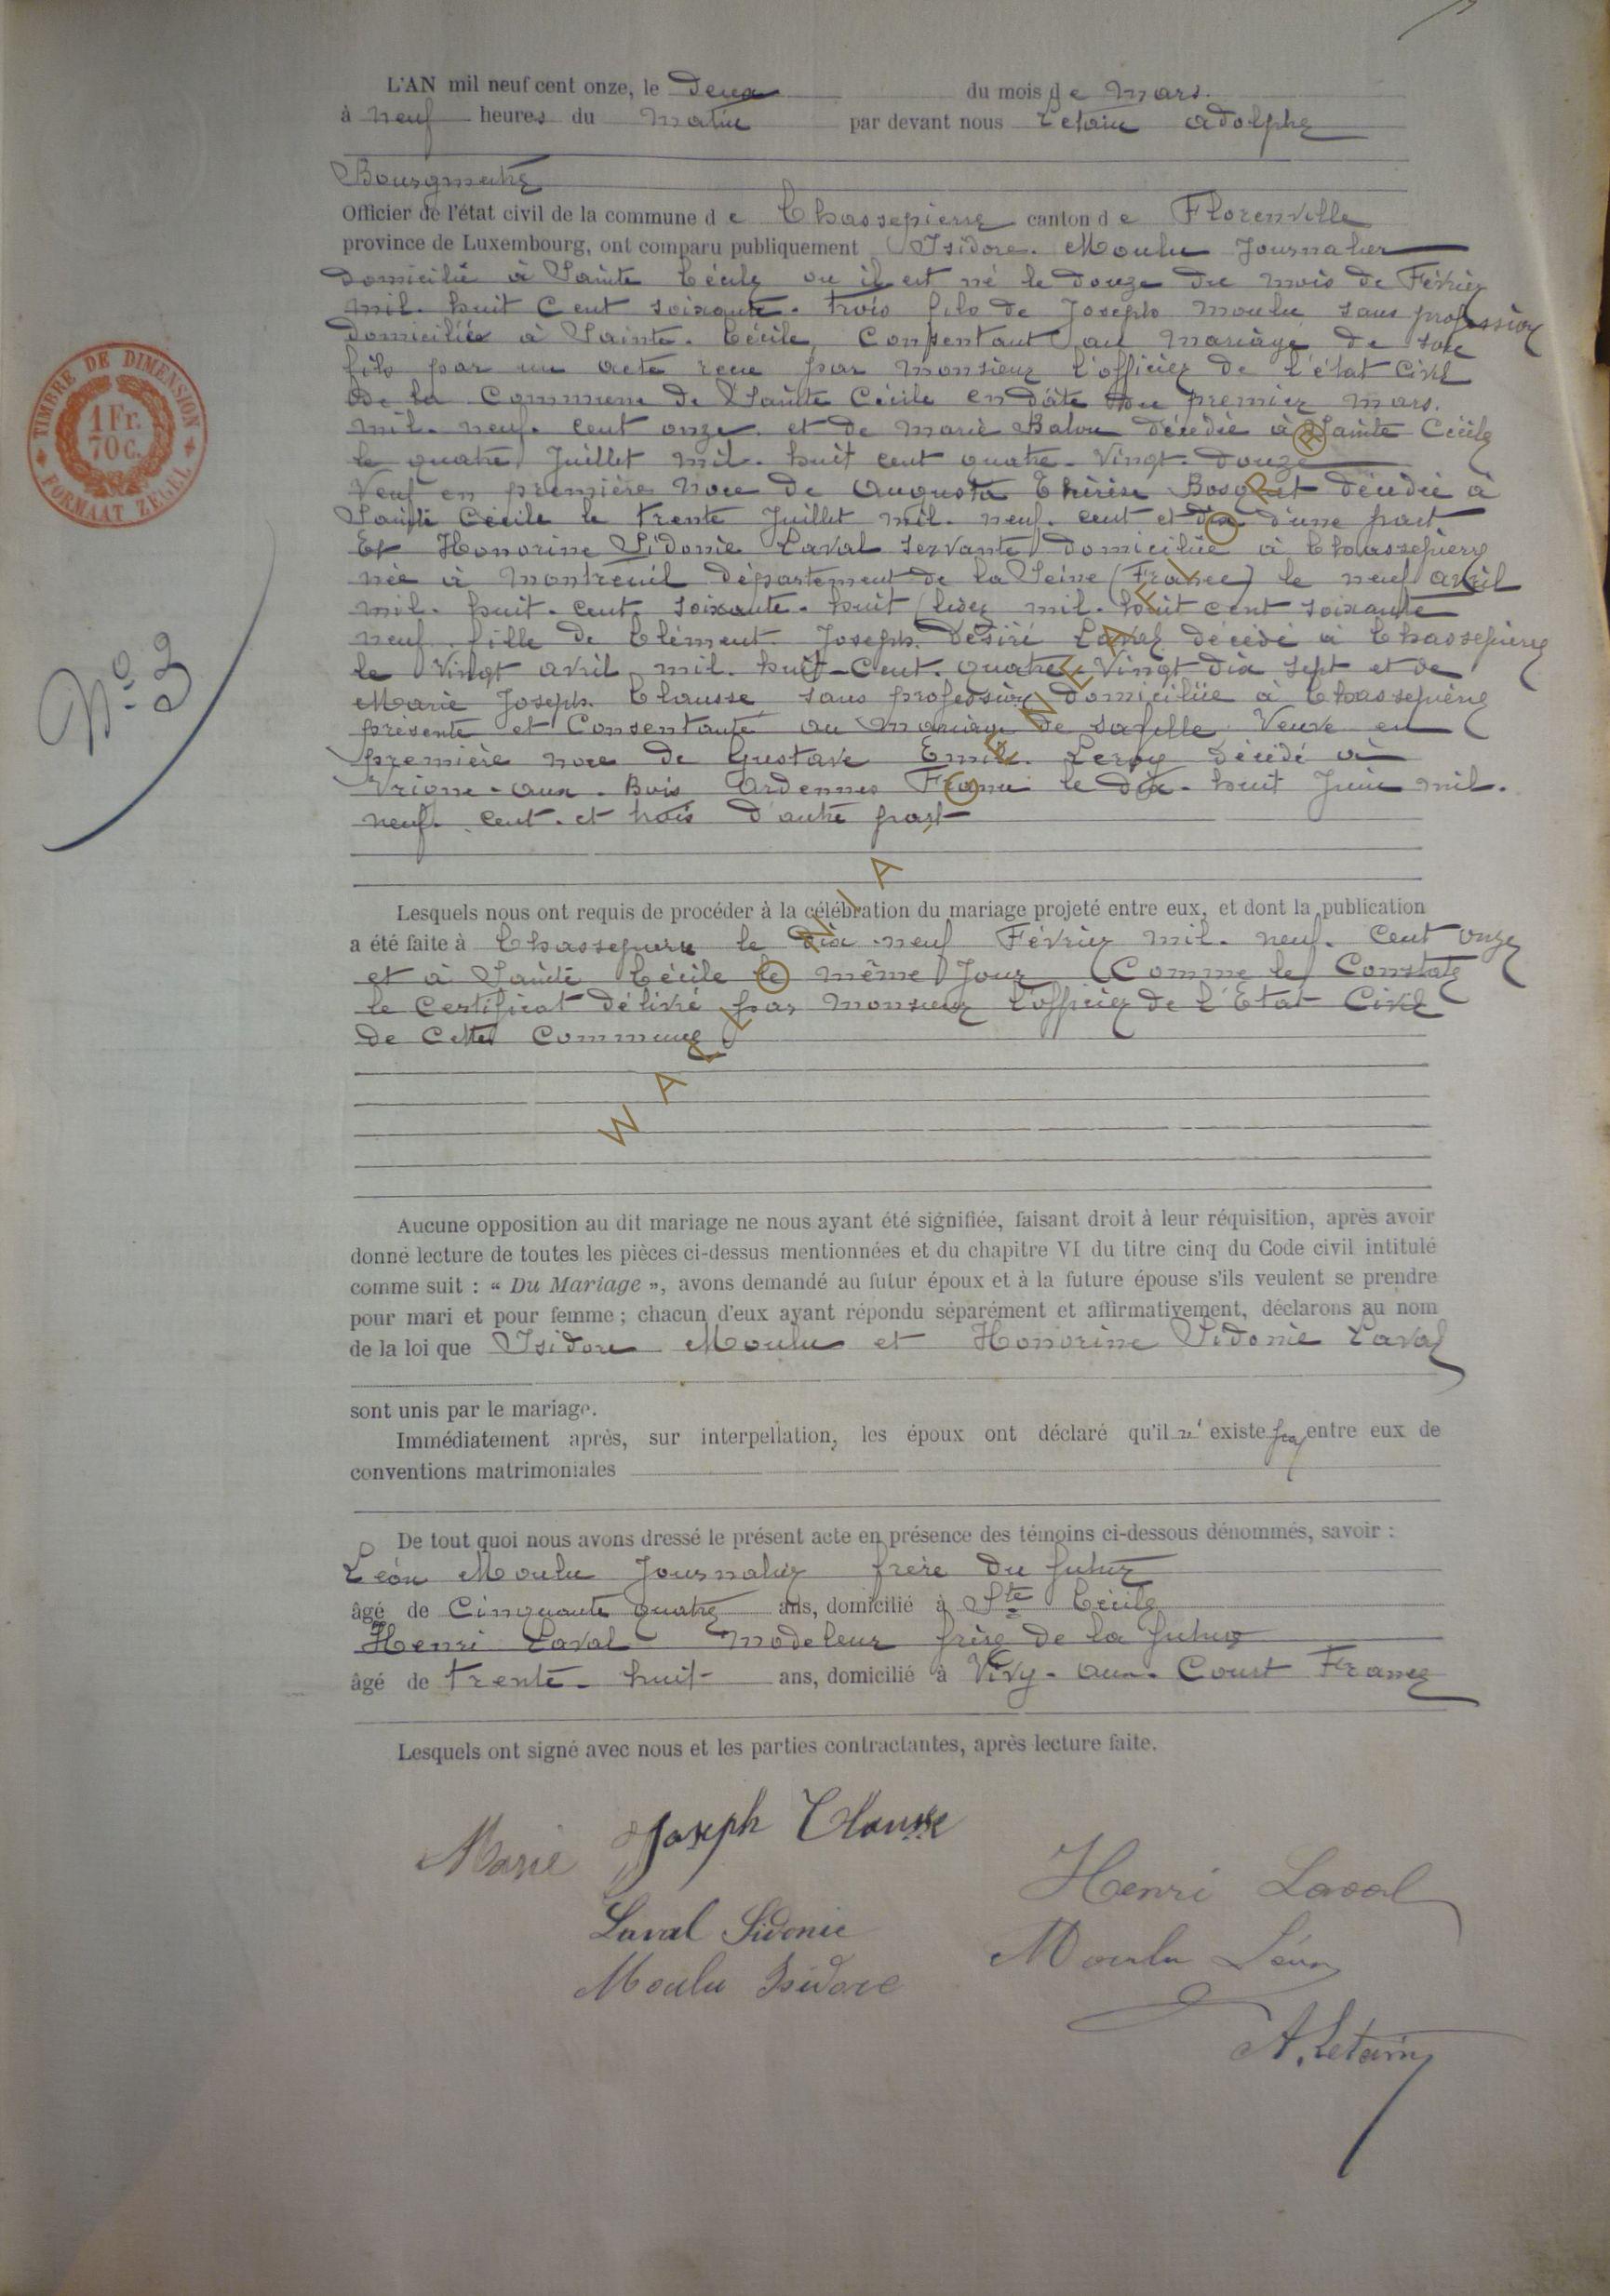 L'AN mil neuf cent onze, le deux du mois de Mars.
à neuf heures du matin par devant nous Letain Adolphe
Bourgmestre
Officier de l'état civil de la commune de Chassepierre canton de Florenville
province de Luxembourg, ont comparu publiquement Isidore Moulu Journalier
domicilié à Sainte Cécile ou il est né le douze du mois de Février
mil. huit Cent soixante. trois fils de Joseph Moulu sans profession
domicilié à Sainte. Cécile, Consentant au mariage de son
fils par un acte recu par Monsieur l'officier de l'état Civil
de la Commune de Sainte Cécile en date du premier mars.
mil. neuf. cent onze. et de Marie Balon décédée à Sainte Cécile
le quatre Juillet mil. huit cent quatre. Vingt. douze
Veuf en première noce de Augusta Thérèse Bosquet décédée à
Sainte Cécile le trente Juillet mil. neuf. cent et dix d'une part
Et Honorine Sidonie Laval servante domiciliée à Chassepierre
née à Montreuil département de la Seine (France) le neuf avril
mil. huit. cent. soixante. huit (lisez mil. huit cent soixante
neuf. fille de Clément Joseph Désiré Laval décédé à Chassepierre
le Vingt avril mil. huit-Cent. quatre Vingt dix sept et de
Marie Joseph Clausse sans profession domiciliée à Chassepierre
présente et Consentante au mariage de sa fille. Veuve en
première noce de Gustave Emile. Leroy décédé à
Vrigne-aux-Bois Ardennes France le dix. huit Juin mil.
neuf. cent. et trois d'autre part
Lesquels nous ont requis de procéder à la célébration du mariage projeté entre eux, et dont la publication
a été faite à Chassepierre le dix. neuf Février mil. neuf. Cent onze
et à Sainte Cécile le même Jour (Comme le Constate
le Certificat délivré par Monsieur l'officier de l'Etat Civil
de Cette Commune)
Aucune opposition au dit mariage ne nous ayant été signifiée, faisant droit à leur réquisition, après avoir
donné lecture de toutes les pièces ci-dessus mentionnées et du chapitre VI du titre cinq du Code civil intitulé
comme suit : « Du Mariage », avons demandé au futur époux et à la future épouse s'ils veulent se prendre
pour mari et pour femme ; chacun d'eux ayant répondu séparément et affirmativement, déclarons au nom
de la loi que Isidore Moulu et Honorine Sidonie Laval
sont unis par le mariage.
Immédiatement après, sur interpellation, les époux ont déclaré qu'il n'existe pas entre eux de
conventions matrimoniales
De tout quoi nous avons dressé le présent acte en présence des témoins ci-dessous dénommés, savoir :
Léon Moulu Journalier frère du futur
âgé de Cinquante quatre ans, domicilié à Ste Cécile
Henri Laval modeleur frère de la future
âgé de trente. huit ans, domicilié à Vivy. aux. Court France
Lesquels ont signé avec nous et les parties contractantes, après lecture faite.
Marie Joseph Clausse
Henri Laval
Laval Sidonie
Moulu Léon
Moulu Isidore
A. Letain
TIMBRE DE DIMENSION
1 Fr.
70 c.
FORMAAT ZEGEL
N° 3